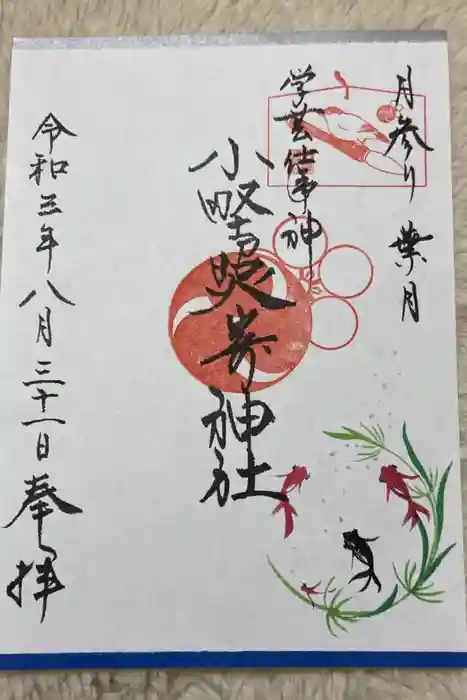 月参り 葉月
学芸仕事神
小野照崎神社
令和三年八月三十一日 奉拝